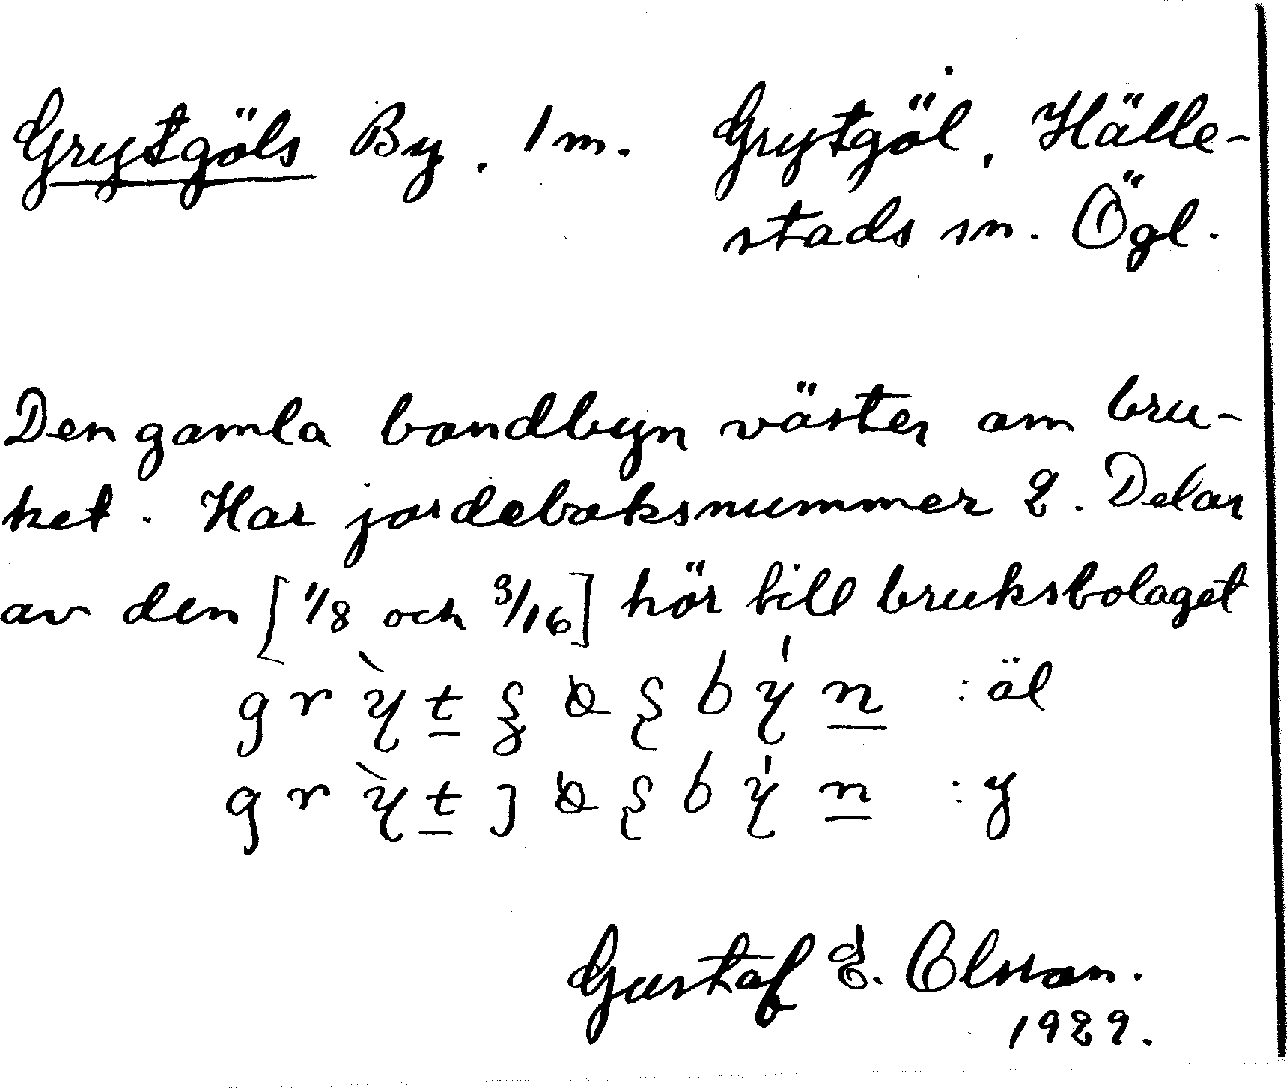 Grytgöls By. 1 m. Grytgöl, Hälle-
stads sn. Ögl.
Den gamla bondbyn väster om bru-
ket. Har jordeboksnummer 2. Delar
av den [1/8 och 3/16] hör till bruksbolaget
: äl
: y
Gustaf E. Olsson.
1929.